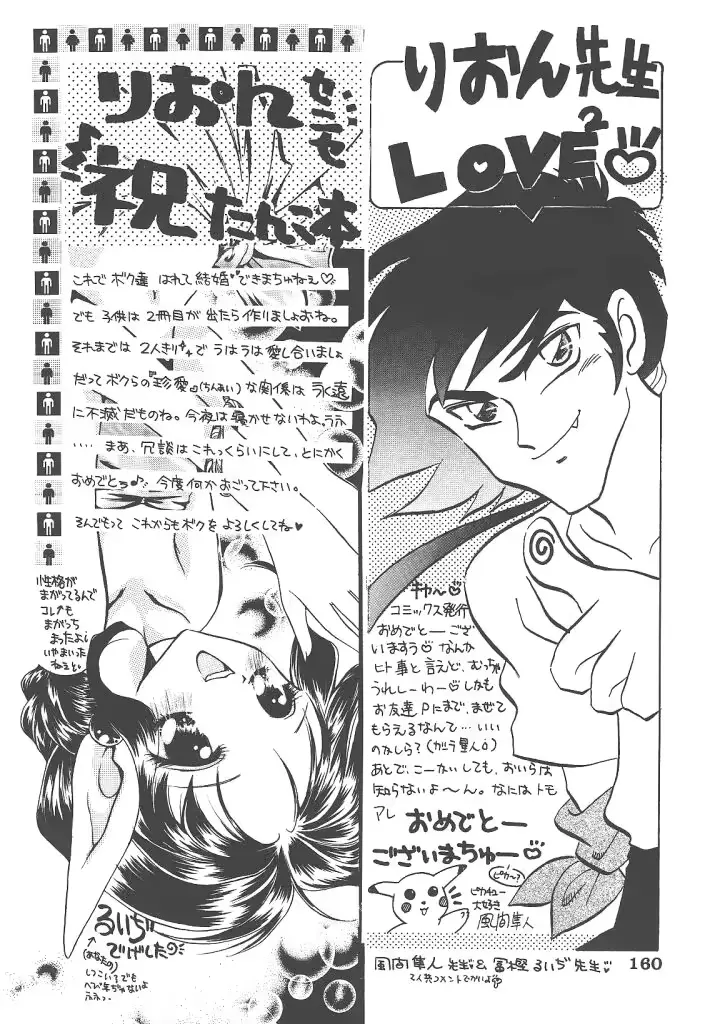 りおん先生
LOVE2
キャ〜
コミックス発行
おめでとーござ
いますぅ なんか
ヒト事と言えど、むっちゃ
うれしーわー しかも
お友達Pにまで、まぜて
もらえるなんて…いい
のかしら？(ガラ星人)
あとで、こーかいしても、おいらは
知らないよ〜ん。なにはトモ
アレ
おめでとー
ございまちゅー
ピカ〜?
ピカチュー
大好き
風間隼人
りおんセンセ
祝たんこ本
これでボク達 はれて結婚できまちゅねぇ♡
でも子供は2冊目が出たら作りましょおね。
それまでは2人きりでうはうは愛し合いましょ
だってボクらの『珍愛』(ちんあい)な関係は永遠
に不滅だものね。今夜は寝かせないわよ、うふ
…… まあ、冗談はこれっくらいにして、とにかく
おめでとっ♪ 今度何かおごって下さい。
るんでもって これからもボクを よろしくしてね♥
性格が
まがってるんで
コレも
まがっち
まったよ
いやまいった
ねぇと
るいぢ
でげした
(あなたの)
しつこいでも
へび年ぢゃないよ
風間隼人 先生&冨樫るいぢ先生
2人共コメントでかいよ
160